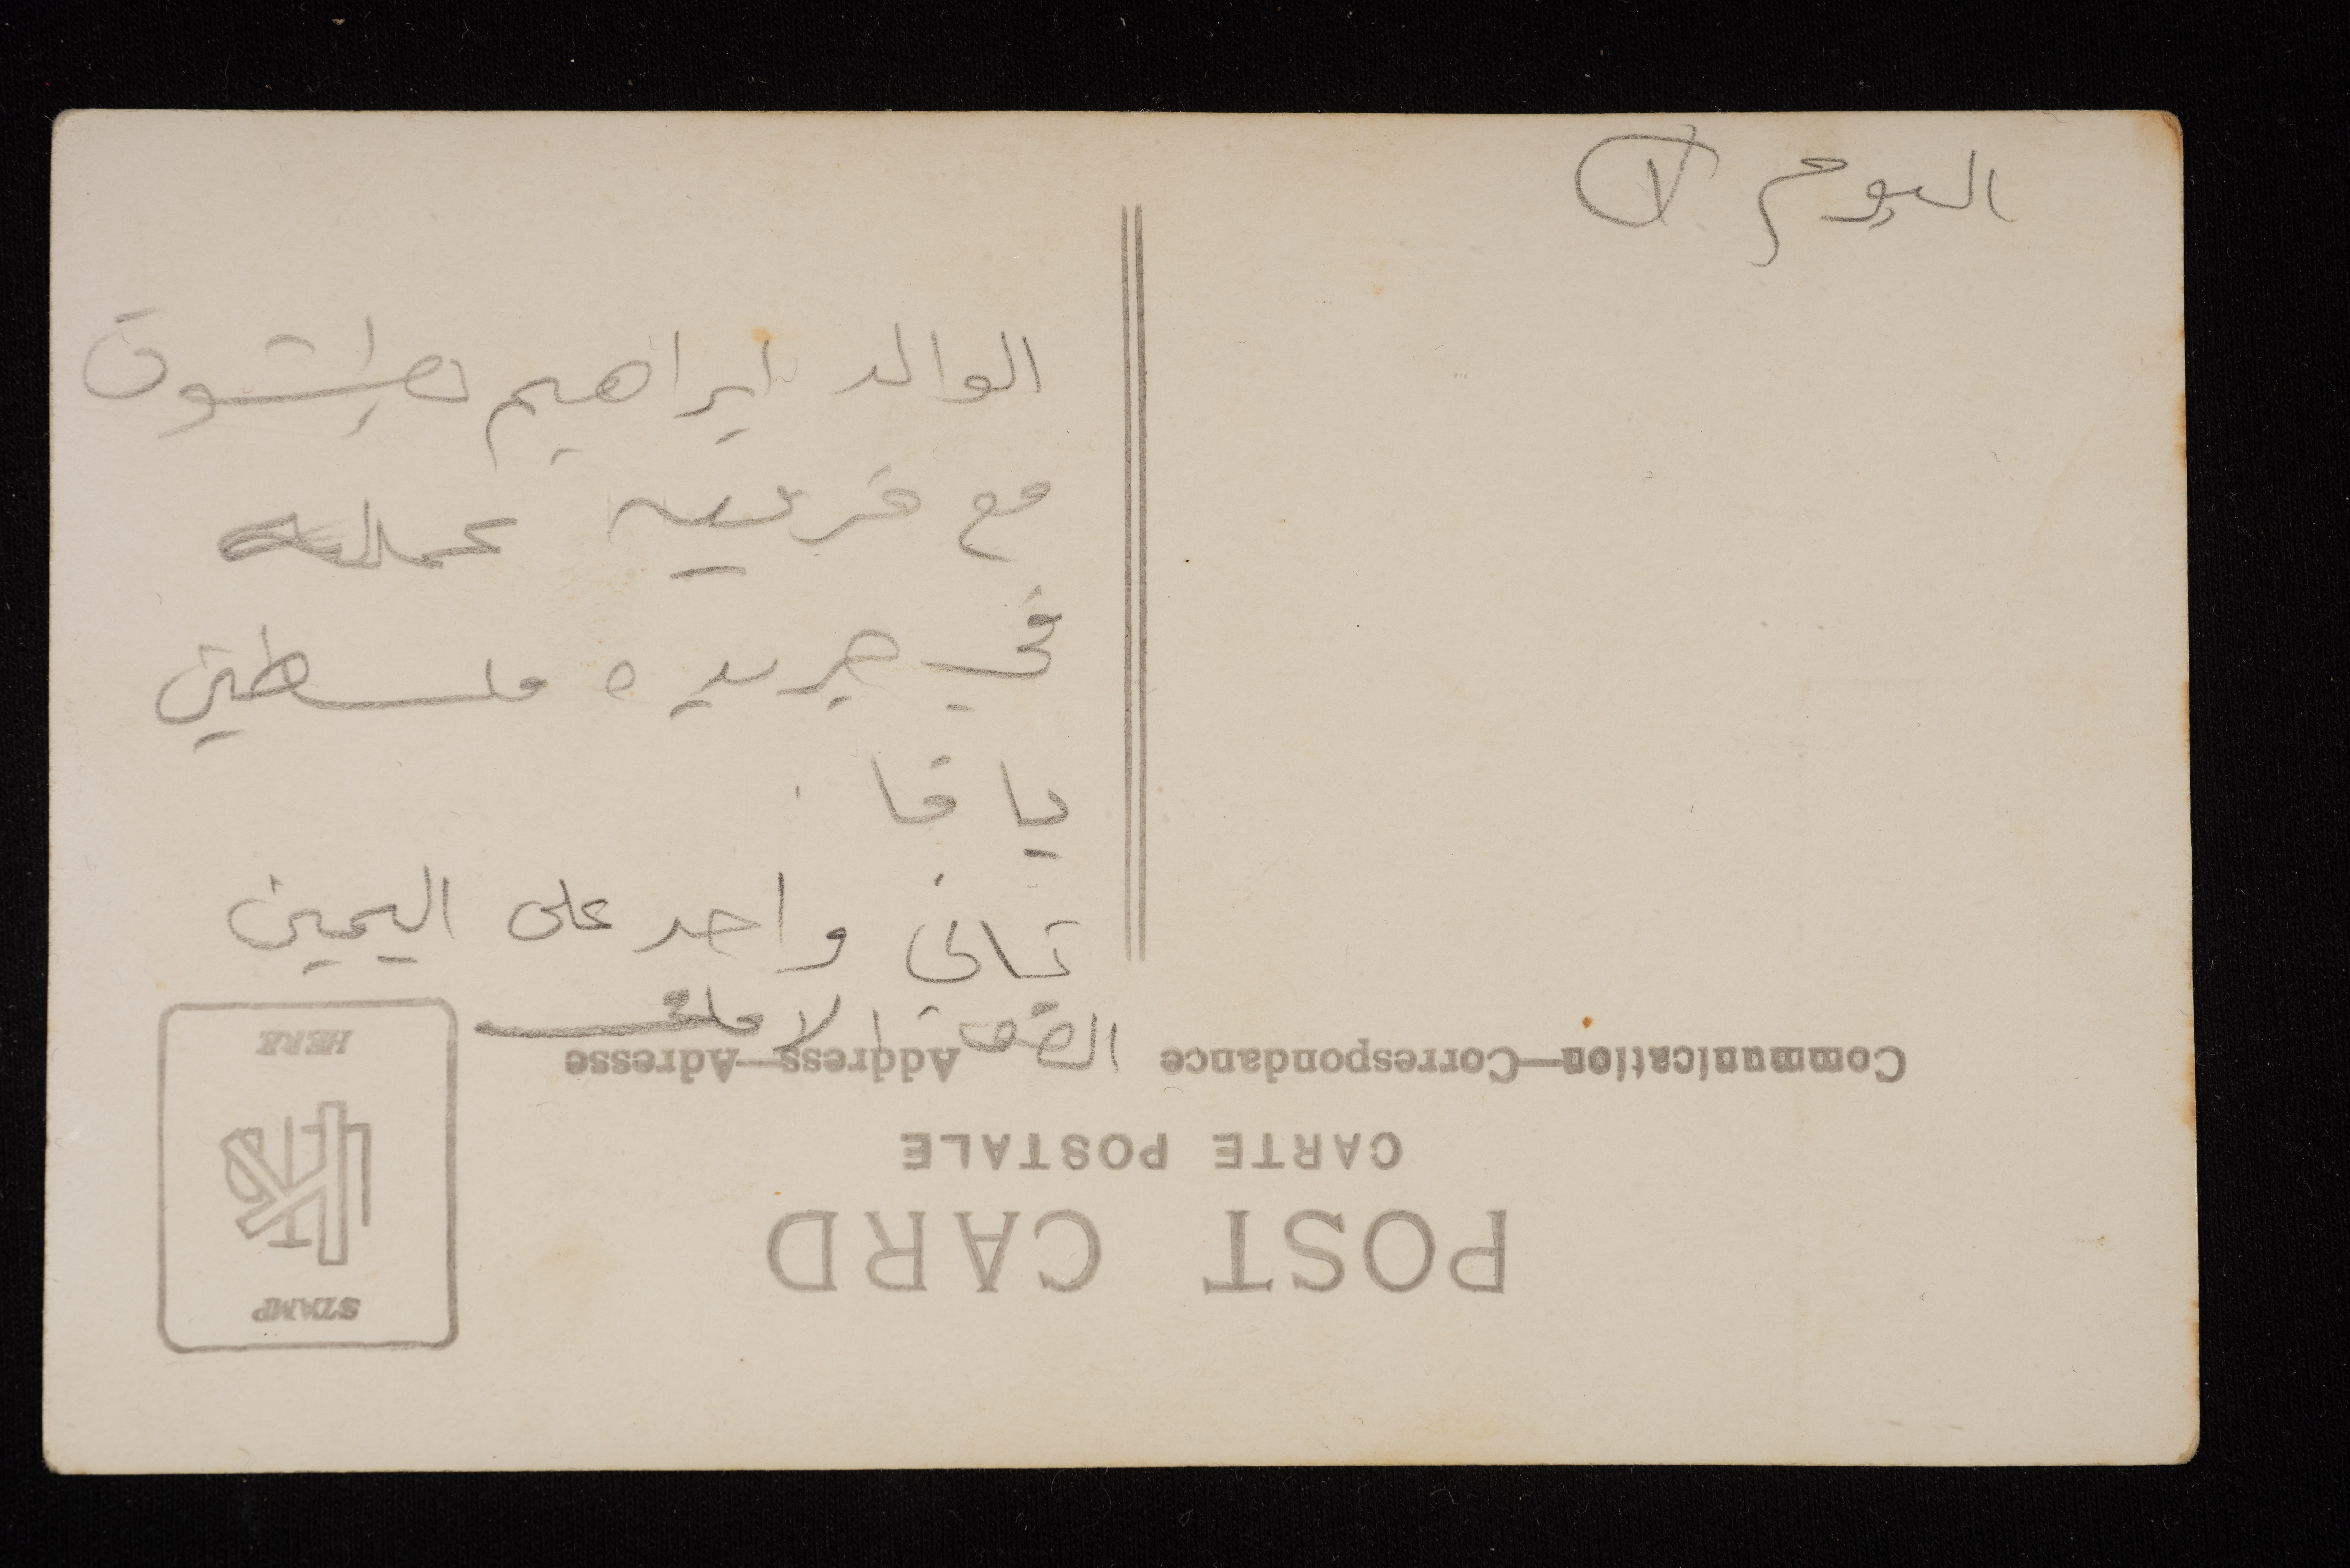 البوم ١
الوالد ابراهيم
مع فريق عمله
في جريده فلسطين
يافا
تاني واحد على اليمين
الصف الامامي
Communication—Correspondance Address—Adresse
CARTE POSTALE
POST CARD
STAMP
HERE